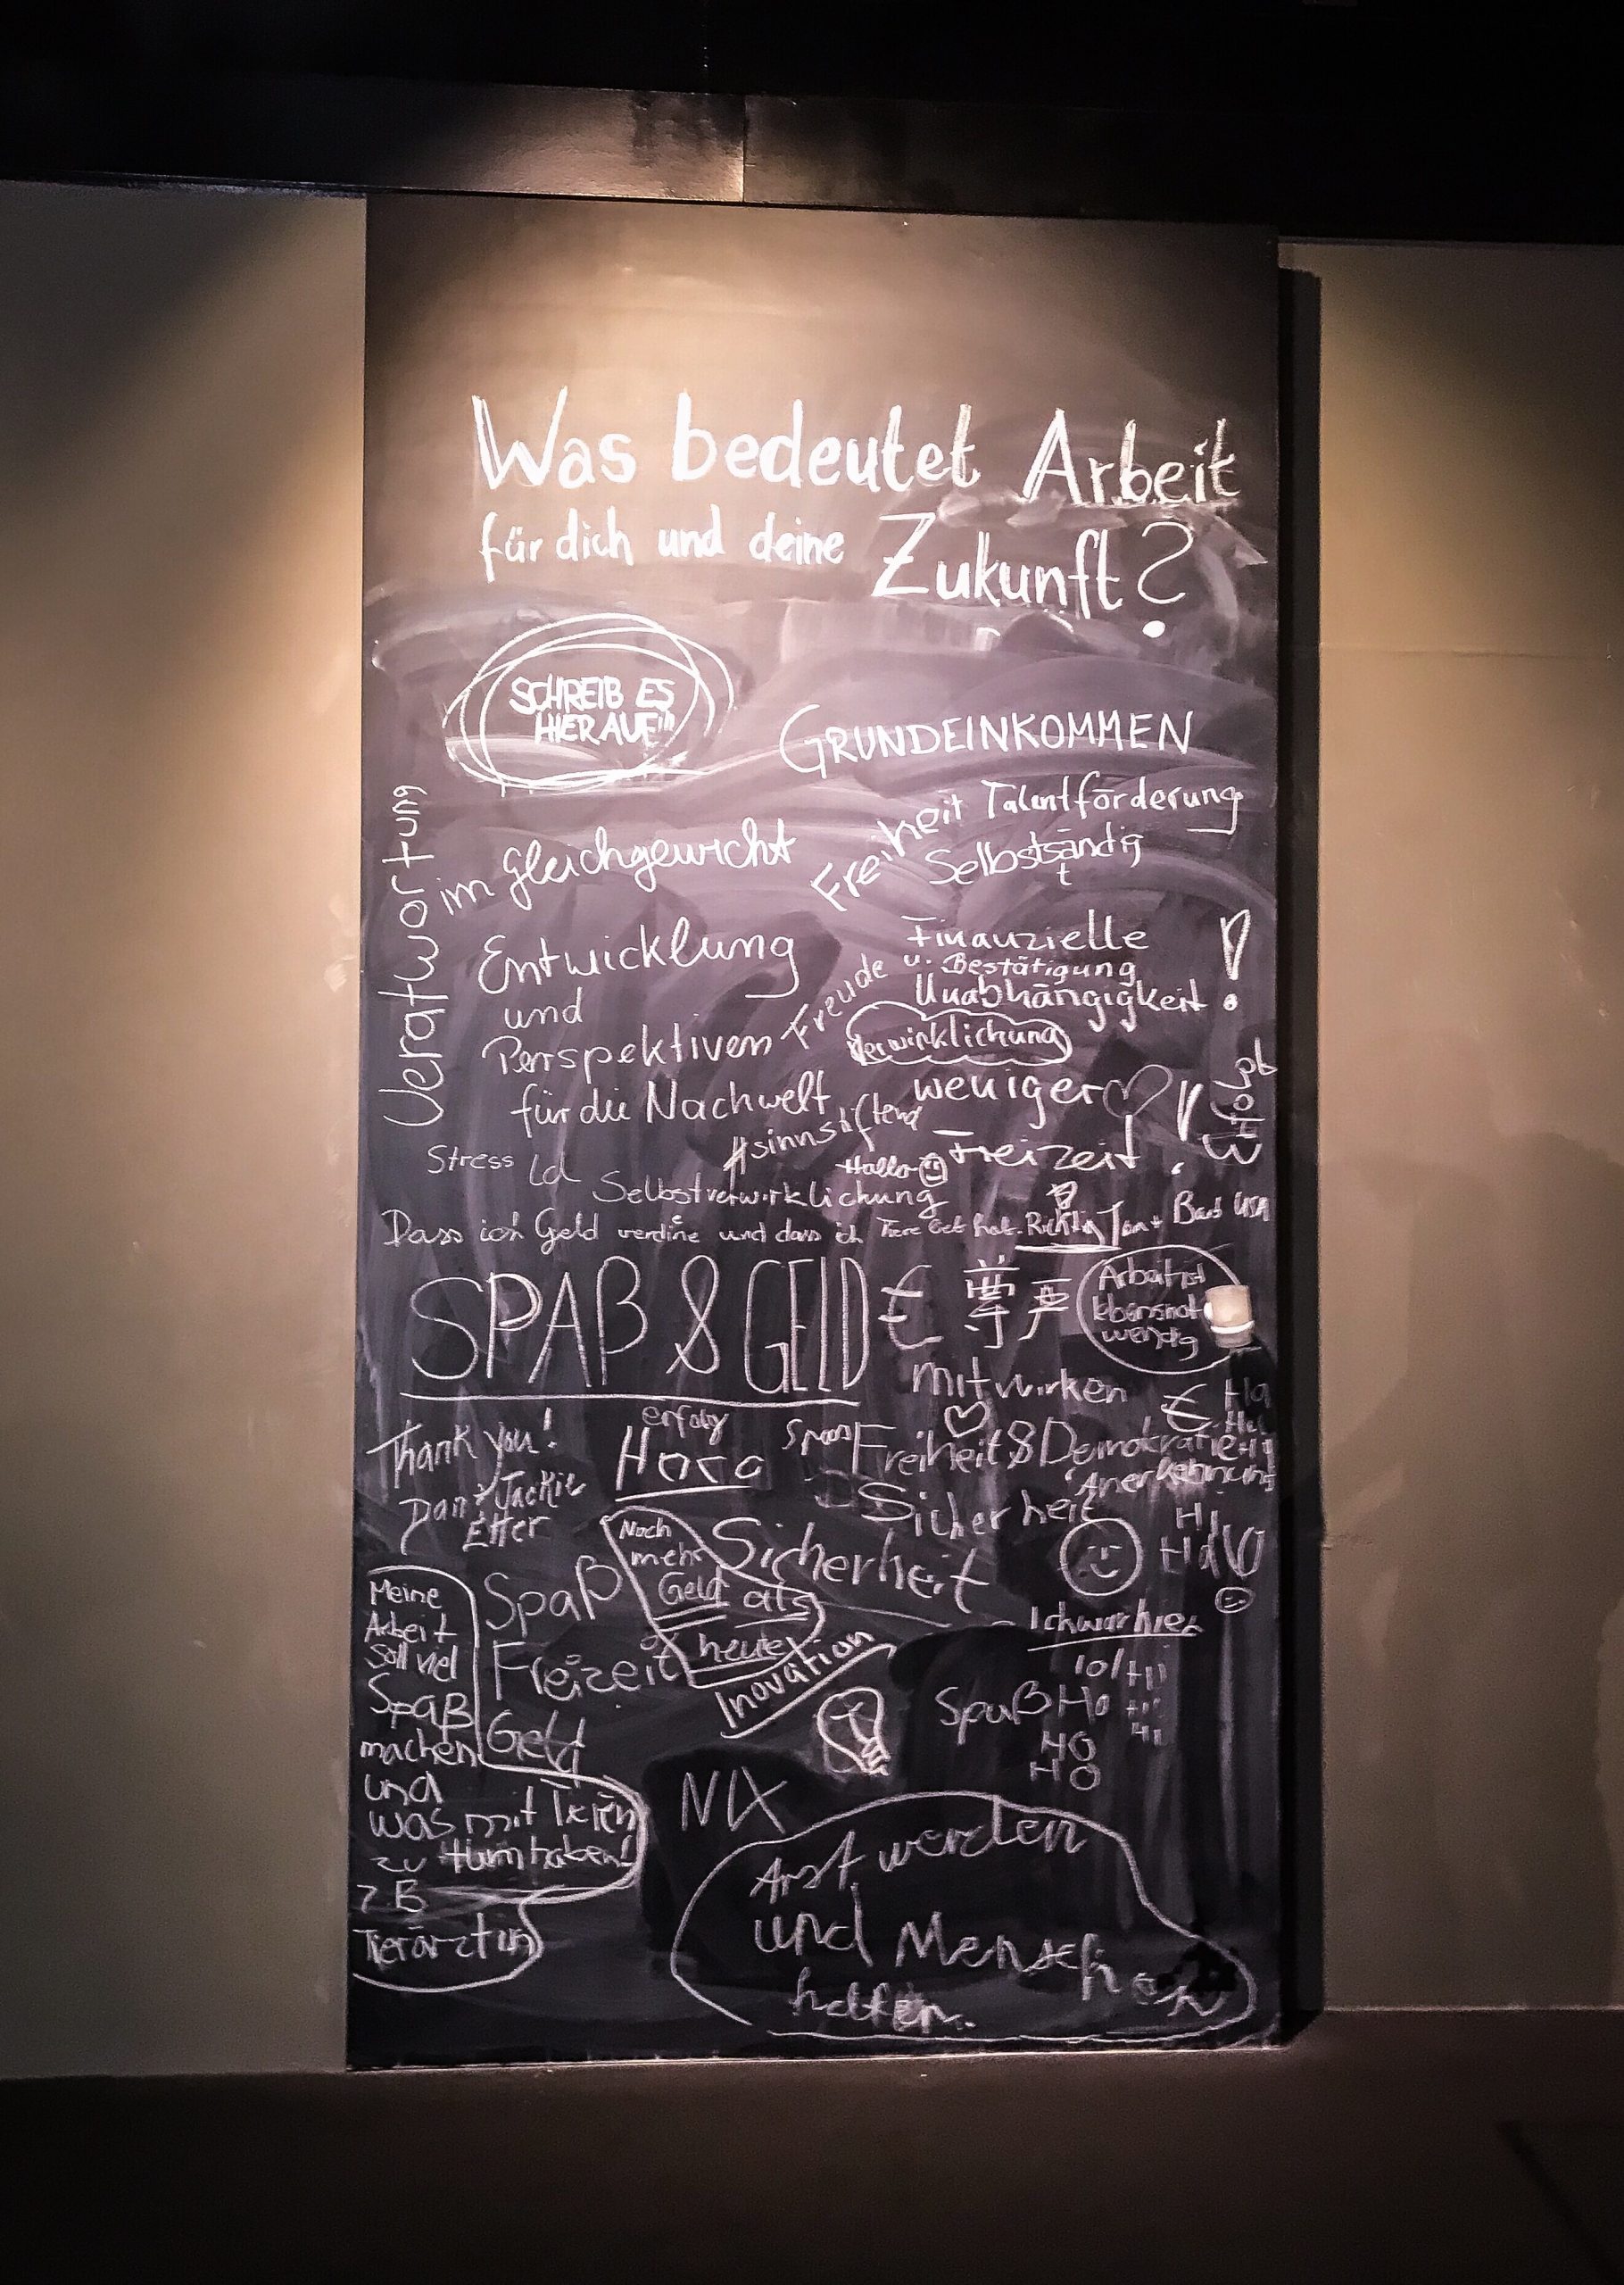 Was bedeutet Arbeit
für dich und deine Zukunft?
SCHREIB ES
HIER AUF!!!
GRUNDEINKOMMEN
Freiheit
Talentförderung
Selbstsändig
t
Veratwortung
im gleichgewicht
Entwicklung
und
Perspektiven
für die Nachwelt
Freude
Finanzielle
u. Bestätigung
Unabhängigkeit !
Verwirklichung
weniger
Freizeit!
Erfolg
#sinnstiftend
Hallo
Stress
Selbstverwirklichung
Dass ich Geld verdine und dass ich Tiere
Richtig
SPAß & GELD €
Arbeit ist
lebensnot
wendig
mitwirken
€
Thank you!
Dan + Jackie
Etter
erfolg
Hora
Spass
Freiheit & Demokratie
Anerkennung
Sicherheit
Noch
mehr
Geld als
heute
Sicherheit
Hi
HdV
Ich war hier
Spaß
Freizeit
Geld
Inovation
Spaß
Ho
HO
HO
Meine
Arbeit
soll viel
Spaß
machen
und
was mit Teien
zu tum haben!
z B
Tierärztin
NIX
Arst werden
und Menschen
helfen.